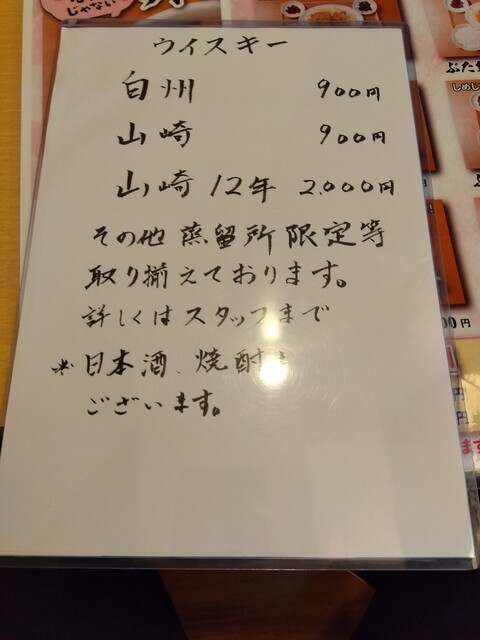 じゃない
ウイスキー
白州 900円
山崎 900円
山崎 12年 2,000円
その他 蒸留所限定等
取り揃えております。
詳しくはスタッフまで
※日本酒、焼酎
ございます。
ぶた
しめじ
00円
円
円
ます